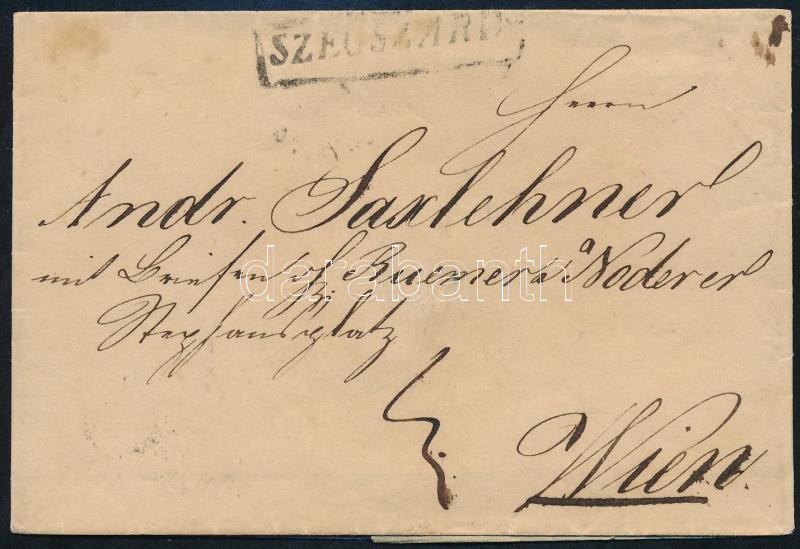 SZEGSZÁRD
Herrn
Andr. Saxlehner
mit Briefen
Noderer
Stephansplatz
Wien.
darabanth